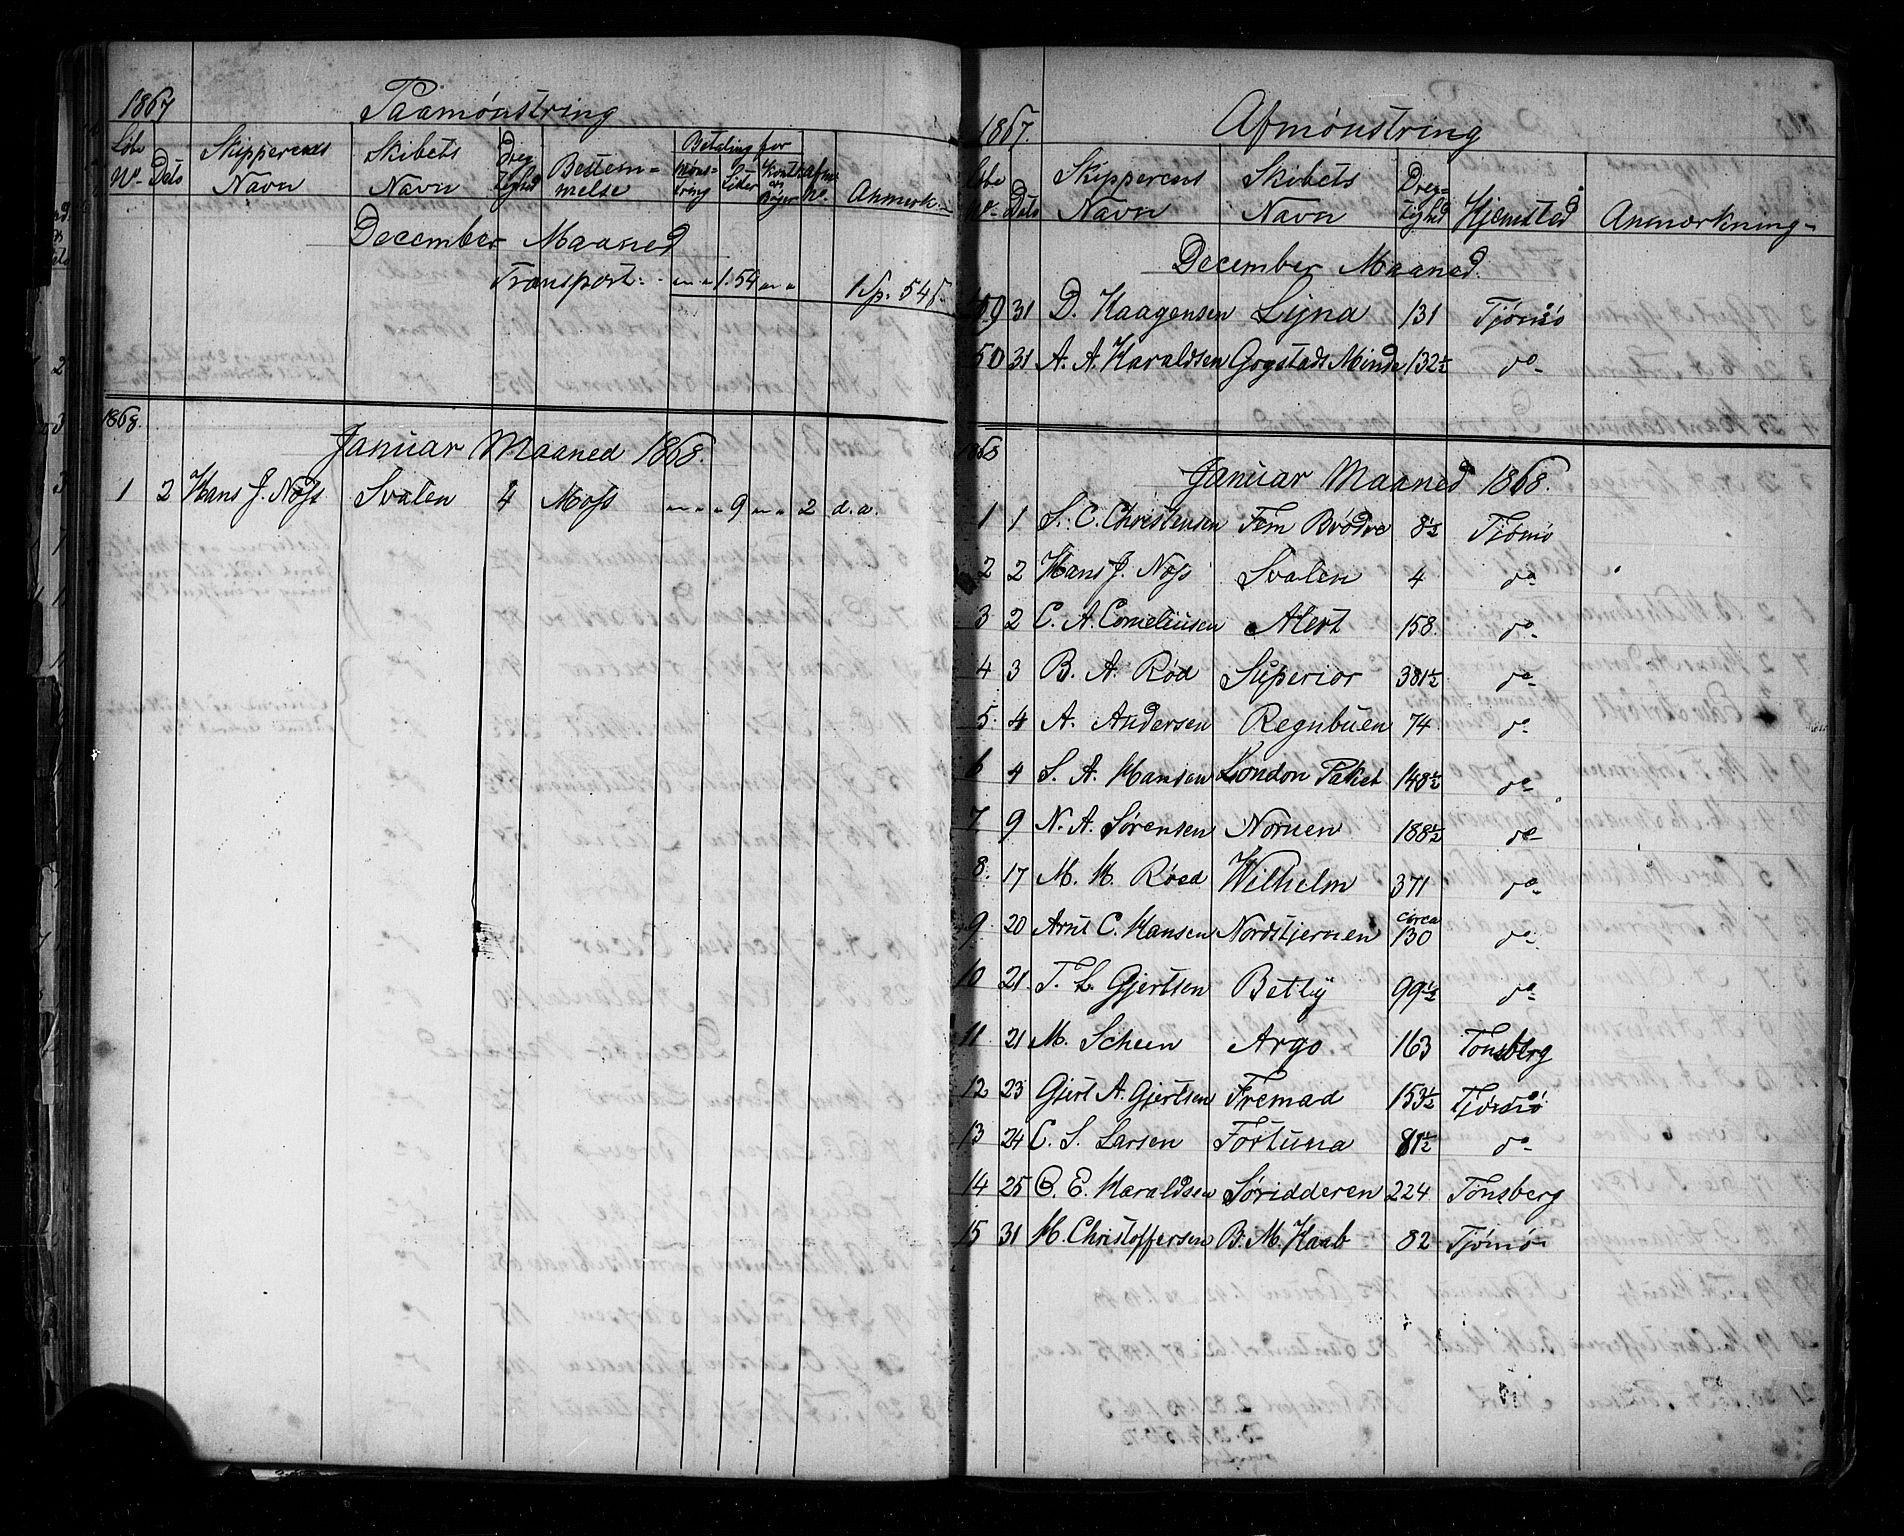 1867 Paamönstring
Löbe No. Dato Skipperens Navn Skibets Navn Dreg-tighed Bestem=melse Betaling for Möns-tring Anmærk.
December Maaned
Transport 1.54 1 Sp. 54
1868.
Januar Maaned 1868.
1 2 Hans J. Nøss Svalen 4 Moss " " " 9 " " 2 d.a.
1867. Afmönstring
Löbe No. Dato Skipperens Navn Skibets Navn Dreg-tighd Hjemsted Anmærkning
December Maaned.
31 D. Haagensen Lyna 131 Tjömö
50 31 A. A. Haraldsen Gogstads Minde 132½ do
1868
Januar Maaned 1868.
1 1 S. C. Christensen Fem Brödre 8½ Tjömö
2 2 Hans J. Nøss Svalen 4 do
3 2 C. A. Corneliusen Alert 158 do
4 3 B. A. Röd Superior 381½ do
5. 4 A. Andersen Regnbuen 74 do
6 4 S. A. Hansen London Paket 148½ do
7 9 N. A. Sörensen Nornen 188½ do
8. 17 M. M. Röed Wilhelm 371 do
9 20 Arnt C. Hansen Nordstjernen circa 130 do
10 21 T. L. Gjertsen Betty 99½ do
11 21 M. Scheen Argo 163 Tönsberg
12 23 Gjert A. Gjertsen Fremad 153½ Tjömö
13 24 C. S. Larsen Fortuna 81½ do
14 25 C. E. Haraldsen Söridderen 224 Tönsberg
15 31 H. Christoffersen B. M. Kaab 82 Tjömö